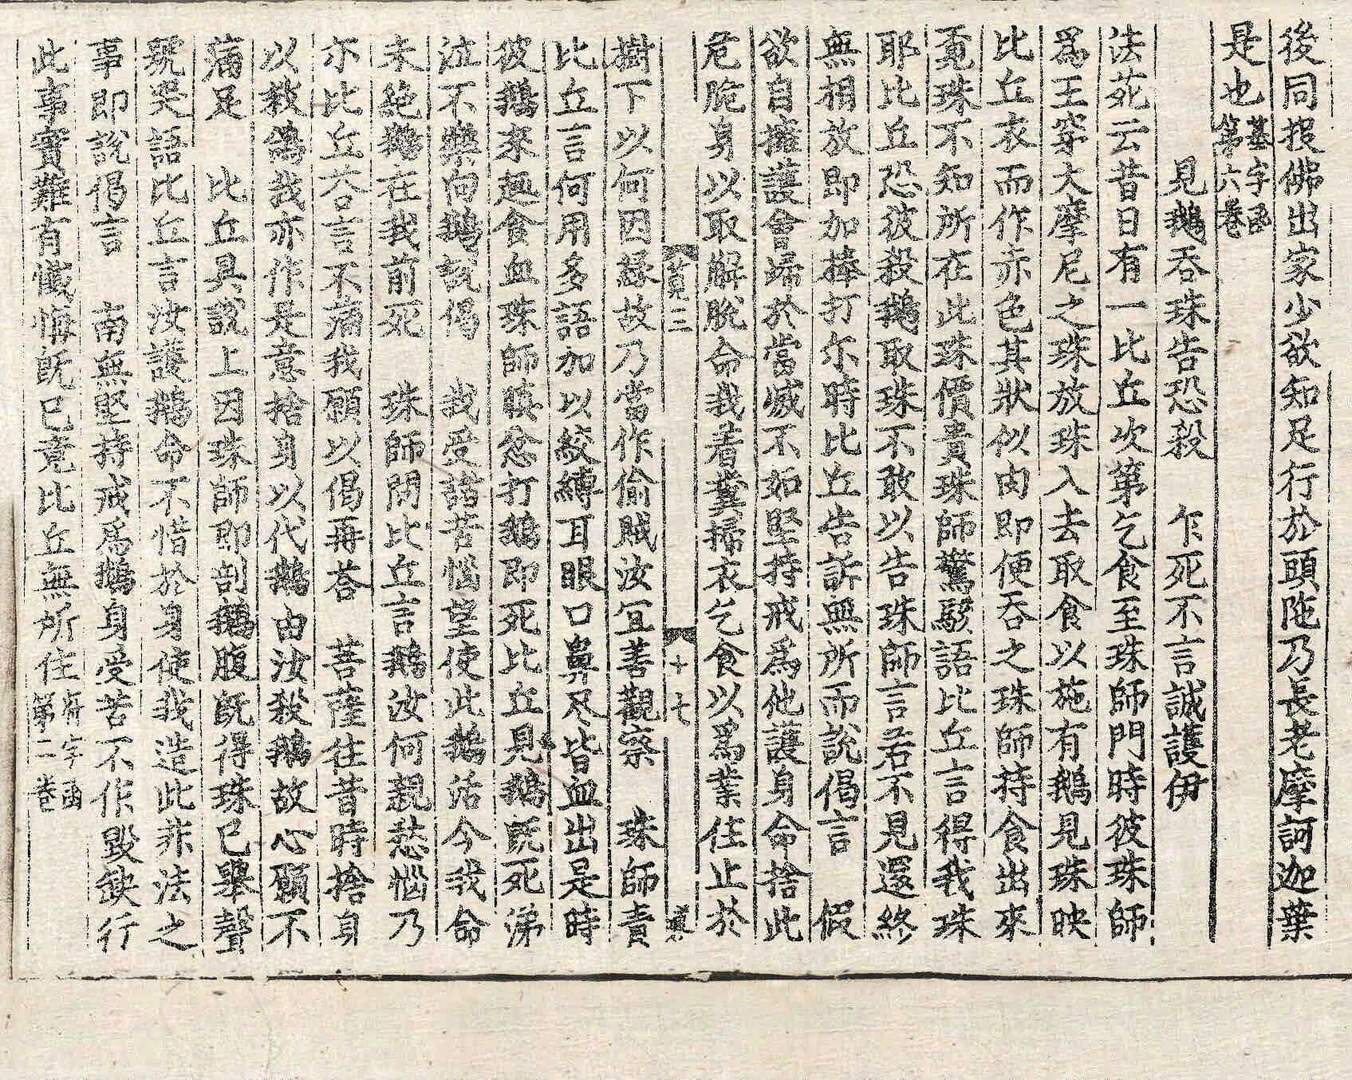 後同投佛出家少欲知足行於頭陁乃長老摩訶迦葉
是也墓字函第六卷
見鵝吞珠告恐殺　乍死不言誠護伊
法苑云昔日有一比丘次第乞食至珠師門時彼珠師
爲王穿大摩尼之珠放珠入去取食以施有鵝見珠映
比丘衣而作赤色其狀似肉即便吞之珠師持食出來
覓珠不知所在此珠價貴珠師驚駭語比丘言得我珠
耶比丘恐彼殺鵝取珠不敢以告珠師言若不見還終
無相放即加捧打尔時比丘告訴無所而說偈言　假
欲自擁護會歸於當滅不如堅持戒爲他護身命捨此
危脆身以取解脫命我着糞掃衣乞食以爲業住止於
賢三　十七
樹下以何因緣故乃當作偷賊汝宜善觀察　珠師責
比丘言何用多語加以絞縛耳眼口鼻尽皆血出是時
彼鵝來趣食血珠師瞋忿打鵝即死比丘見鵝旣死涕
泣不樂向鵝說偈　我受諸苦惱望使此鵝活今我命
未絶鵝在我前死　珠師問比丘言鵝汝何親愁惱乃
尓比丘荅言不痛我願以偈再荅　菩薩往昔時捨身
以救鴿我亦作是意捨身以代鵝由汝殺鵝故心願不
痛足　比丘具說上因珠師即剖鵝腹旣得珠已舉聲
號哭語比丘言汝護鵝命不惜於身使我造此非法之
事即說偈言　南無堅持戒爲鵝身受苦不作毀缺行
此事實難有懺悔旣已竟比丘無所住府字函第二卷